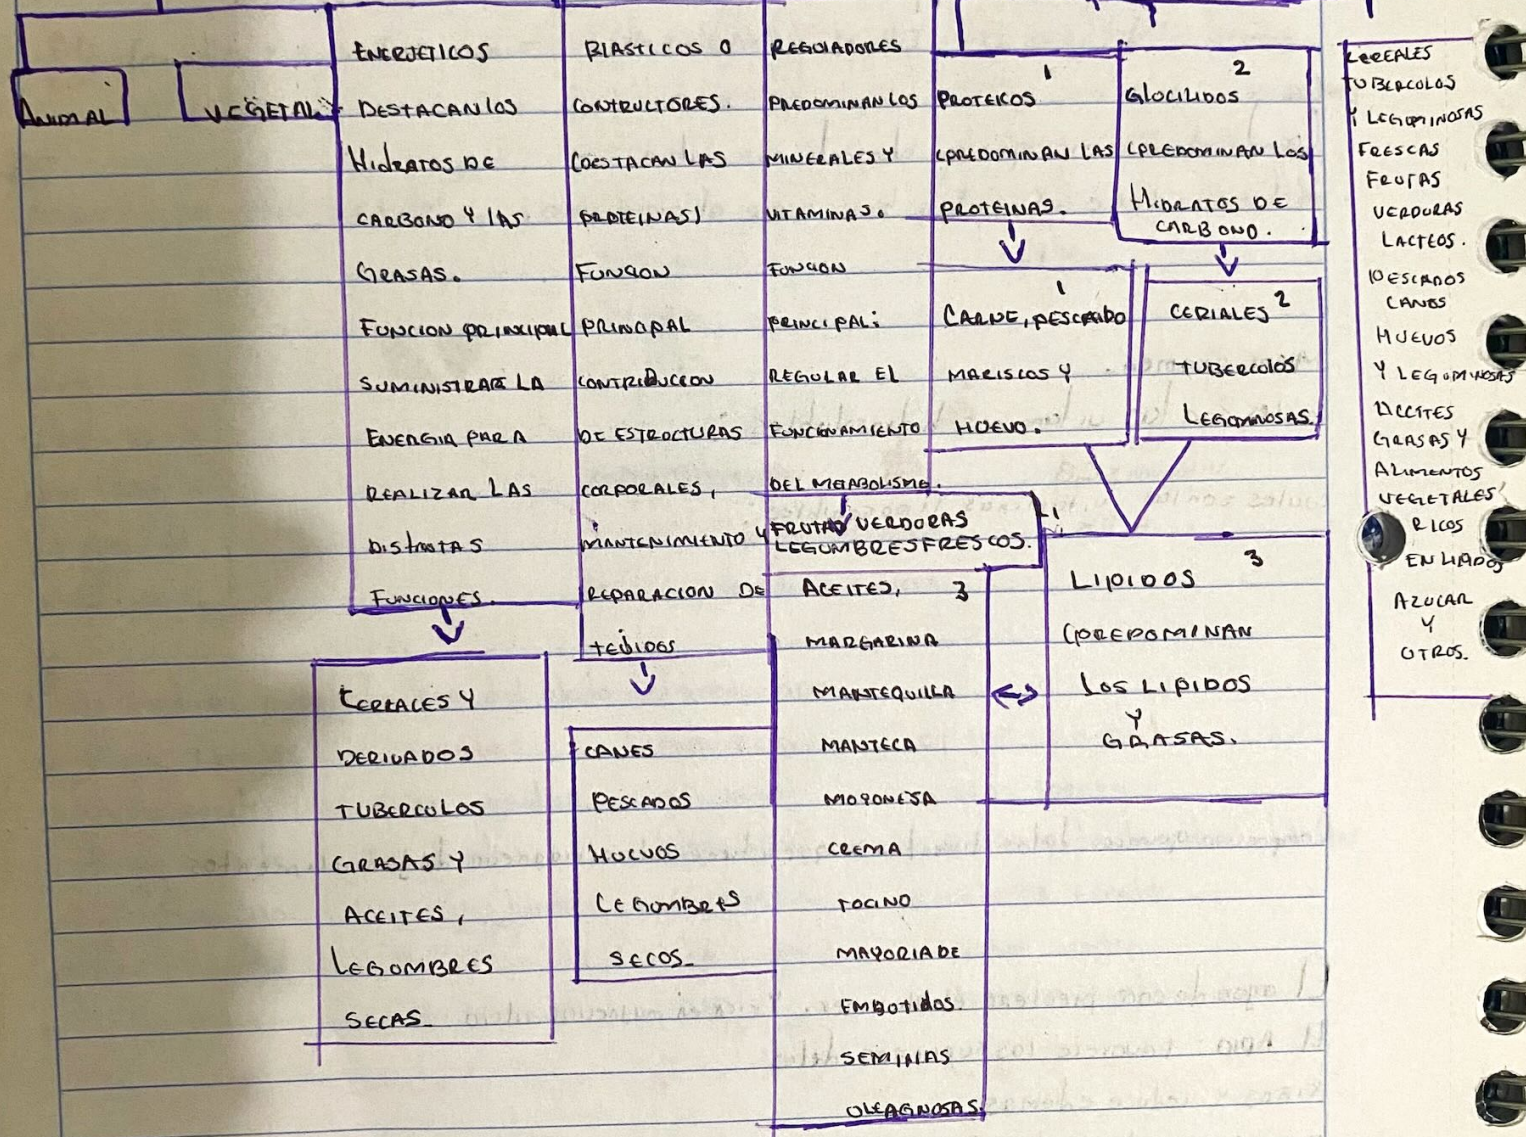 ANIMAL
VEGETAL
ENERJETICOS
DESTACAN LOS
HIDRATOS DE
CARBONO Y LAS
GRASAS.
FUNCION PRINCIPAL
SUMINISTRAR LA
ENERGIA PARA
REALIZAR LAS
DISTINTAS
FUNCIONES.
CEREALES Y
DERIVADOS
TUBERCULOS
GRASAS Y
ACEITES,
LEGOMBRES
SECAS
BLASTICOS O
CONTRUCTORES.
(DESTACAN LAS
PROTEINAS)
FUNCION
PRINCIPAL
CONTRIBUCION
DE ESTROCTURAS
CORPORALES,
MANTENIMIENTO Y
REPARACION DE
TEJIDOS
CANES
PESCADOS
HUEVOS
LEGOMBRES
SECOS
REGULADORES
PREDOMINAN LOS
MINERALES Y
VITAMINAS.
FUNCION
PRINCIPAL:
REGULAR EL
FUNCIONAMIENTO
DEL METABOLISMO.
FRUTAS VERDURAS
LEGUMBRES FRESCOS.
ACEITES, 3
MARGARINA
MANTEQUILLA
MANTECA
MOYONESA
CREMA
TOCINO
MAYORIA DE
EMBOTIDOS.
SEMINAS
OLEAGNOSAS.
1
PROTEICOS
(PREDOMINAN LAS
PROTEINAS.
1
CARNE, PESCADO
MARISCOS Y
HUEVO.
2
GLOCILIDOS
(PREDOMINAN LOS
HIDRATOS DE
CARBONO.
CERIALES 2
TUBERCOLOS
LEGOMINOSAS.
3
LIPIDOS
(PREDOMINAN
LOS LIPIDOS
Y
GRASAS.
CEREALES
TUBERCOLOS
Y LEGOMINOSAS
FRESCAS
FRUTAS
VERDURAS
LACTEOS.
PESCADOS
CANES
HUEVOS
Y LEGOMINOSAS
ACEITES
GRASAS Y
ALIMENTOS
VEGETALES
RICOS
EN LIPIDOS
AZUCAR
Y
OTROS.